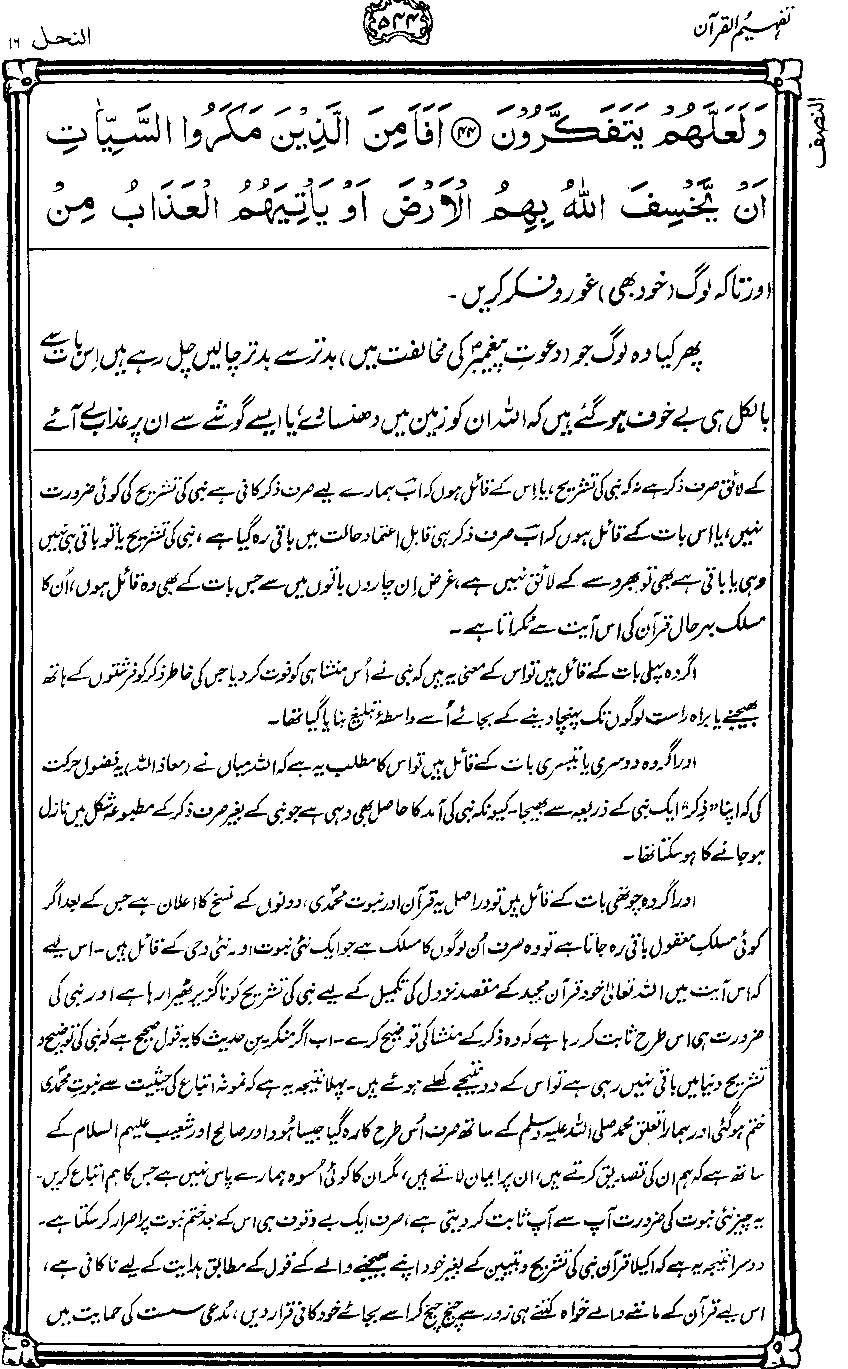 تفہیم القرآن
۵۴۴
النحل ۱۶
النصف
وَلَعَلَّهُمْ يَتَفَكَّرُوْنَ ﴿۴۴﴾ اَفَاَمِنَ الَّذِيْنَ مَكَرُوا السَّيِّاٰتِ
اَنْ يَّخْسِفَ اللّٰهُ بِهِمُ الْاَرْضَ اَوْ يَاْتِيَهُمُ الْعَذَابُ مِنْ
اور تاکہ لوگ (خود بھی) غور و فکر کریں۔
پھر کیا وہ لوگ جو (دعوتِ پیغمبرؐ کی مخالفت میں) بدتر سے بدتر چالیں چل رہے ہیں اِس بات سے
بالکل ہی بے خوف ہو گئے ہیں کہ اللہ ان کو زمین میں دھنسا دے، یا ایسے گوشے سے ان پر عذاب لے آئے
کے لائق صرف ذکر ہے نہ کہ نبی کی تشریح، یا اِس کے قائل ہوں کہ اب ہمارے لیے صرف ذکر کافی ہے نبی کی تشریح کی کوئی ضرورت
نہیں، یا اِس بات کے قائل ہوں کہ اب صرف ذکر ہی قابلِ اعتماد حالت میں باقی رہ گیا ہے، نبی کی تشریح یا تو باقی ہی نہیں
رہی یا باقی ہے بھی تو بھروسے کے لائق نہیں ہے، غرض اِن چاروں باتوں میں سے جس بات کے بھی وہ قائل ہوں، اُن کا
مسلک بہرحال قرآن کی اس آیت سے ٹکراتا ہے۔
اگر وہ پہلی بات کے قائل ہیں تو اس کے معنی یہ ہیں کہ نبی نے اُس منشا ہی کو فوت کر دیا جس کی خاطر ذکر کو فرشتوں کے ہاتھ
بھیجنے یا براہ راست لوگوں تک پہنچا دینے کے بجائے اُسے واسطۂ تبلیغ بنایا گیا تھا۔
اور اگر وہ دوسری یا تیسری بات کے قائل ہیں تو اس کا مطلب یہ ہے کہ اللہ میاں نے (معاذ اللہ) یہ فضول حرکت
کی کہ اپنا "ذکر" ایک نبی کے ذریعہ سے بھیجا۔ کیونکہ نبی کی آمد کا حاصل بھی وہی ہے جو نبی کے بغیر صرف ذکر کے مطبوعہ شکل میں نازل
ہو جانے کا ہو سکتا تھا۔
اور اگر وہ چوتھی بات کے قائل ہیں تو دراصل یہ قرآن اور نبوت محمدی، دونوں کے نسخ کا اعلان ہے جس کے بعد اگر
کوئی مسلک معقول باقی رہ جاتا ہے تو وہ صرف اُن لوگوں کا مسلک ہے جو ایک نئی نبوت اور نئی وحی کے قائل ہیں۔ اس لیے
کہ اس آیت میں اللہ تعالیٰ خود قرآن مجید کے مقصدِ نزول کی تکمیل کے لیے نبی کی تشریح کو ناگزیر ٹھیرا رہا ہے اور نبی کی
ضرورت ہی اس طرح ثابت کر رہا ہے کہ وہ ذکر کے منشا کی توضیح کرے۔ اب اگر منکرینِ حدیث کا یہ قول صحیح ہے کہ نبی کی توضیح و
تشریح دنیا میں باقی نہیں رہی ہے تو اس کے دو نتیجے کھلے ہوئے ہیں۔ پہلا نتیجہ یہ ہے کہ نمونۂ اتباع کی حیثیت سے نبوتِ محمدی
ختم ہو گئی اور ہمارا تعلق محمد صلی اللہ علیہ وسلم کے ساتھ صرف اُس طرح کا رہ گیا جیسا ہود اور صالح اور شعیب علیہم السلام کے
ساتھ ہے کہ ہم ان کی تصدیق کرتے ہیں، ان پر ایمان لاتے ہیں، مگر ان کا کوئی اُسوہ ہمارے پاس نہیں ہے جس کا ہم اتباع کریں۔
یہ چیز نئی نبوت کی ضرورت آپ سے آپ ثابت کر دیتی ہے، صرف ایک بے وقوف ہی اس کے بعد ختم نبوت پر اصرار کر سکتا ہے۔
دوسرا نتیجہ یہ ہے کہ اکیلا قرآن نبی کی تشریح و تبیین کے بغیر خود اپنے بھیجنے والے کے قول کے مطابق ہدایت کے لیے ناکافی ہے،
اس لیے قرآن کے ماننے والے خواہ کتنے ہی زور سے چیخ چیخ کر اسے بجائے خود کافی قرار دیں، مُدعی سست کی حمایت میں